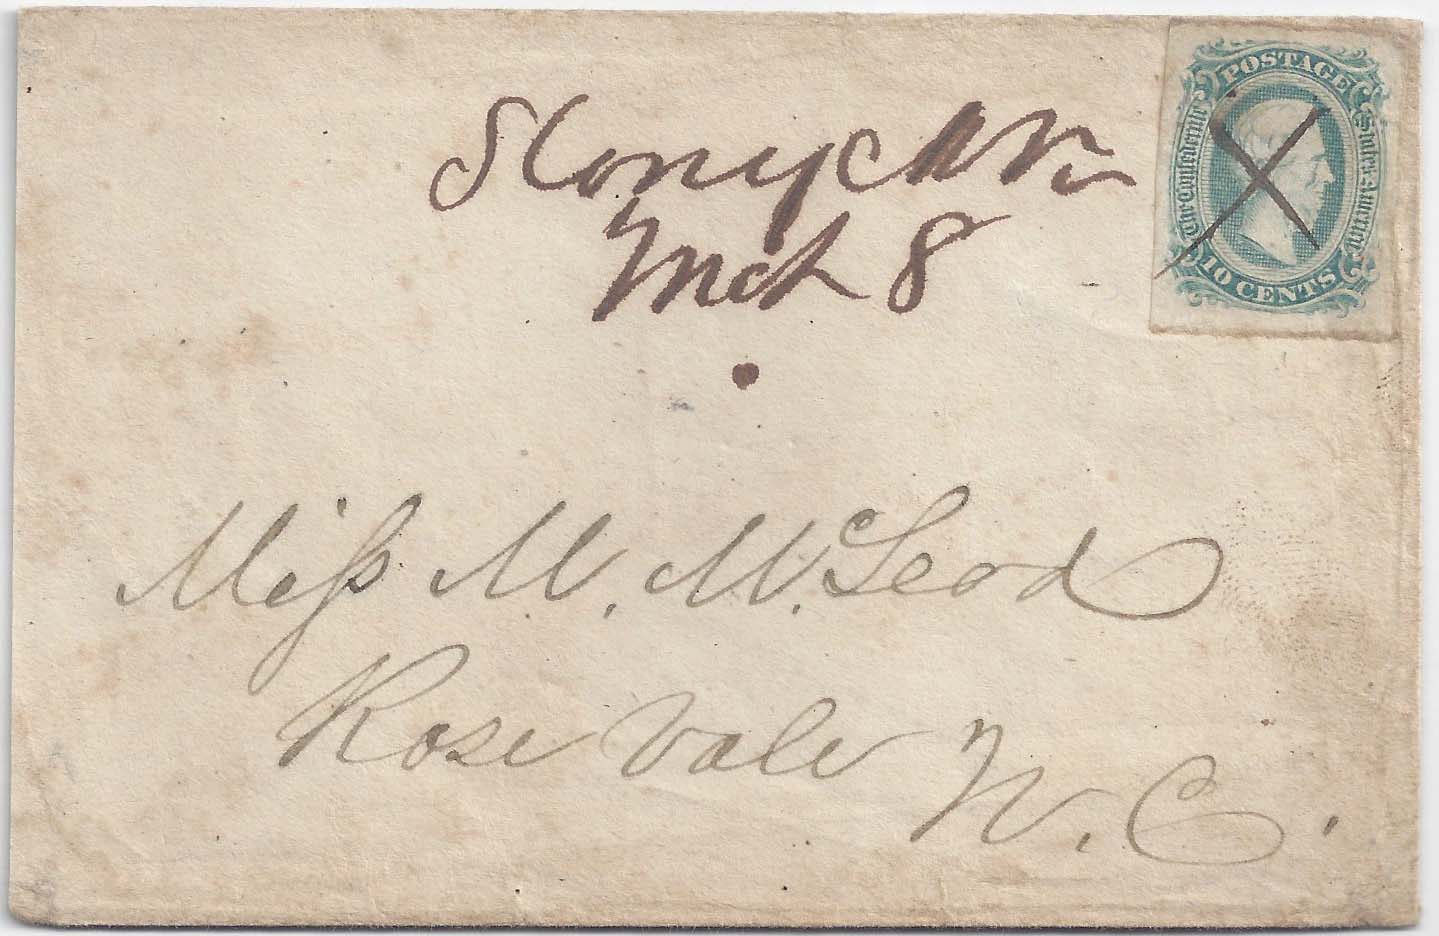 Stony Ck Va
Mch 8
POSTAGE
The Confederate States America
10 CENTS
Miss M. McLeod
Rose Vale
N. C.